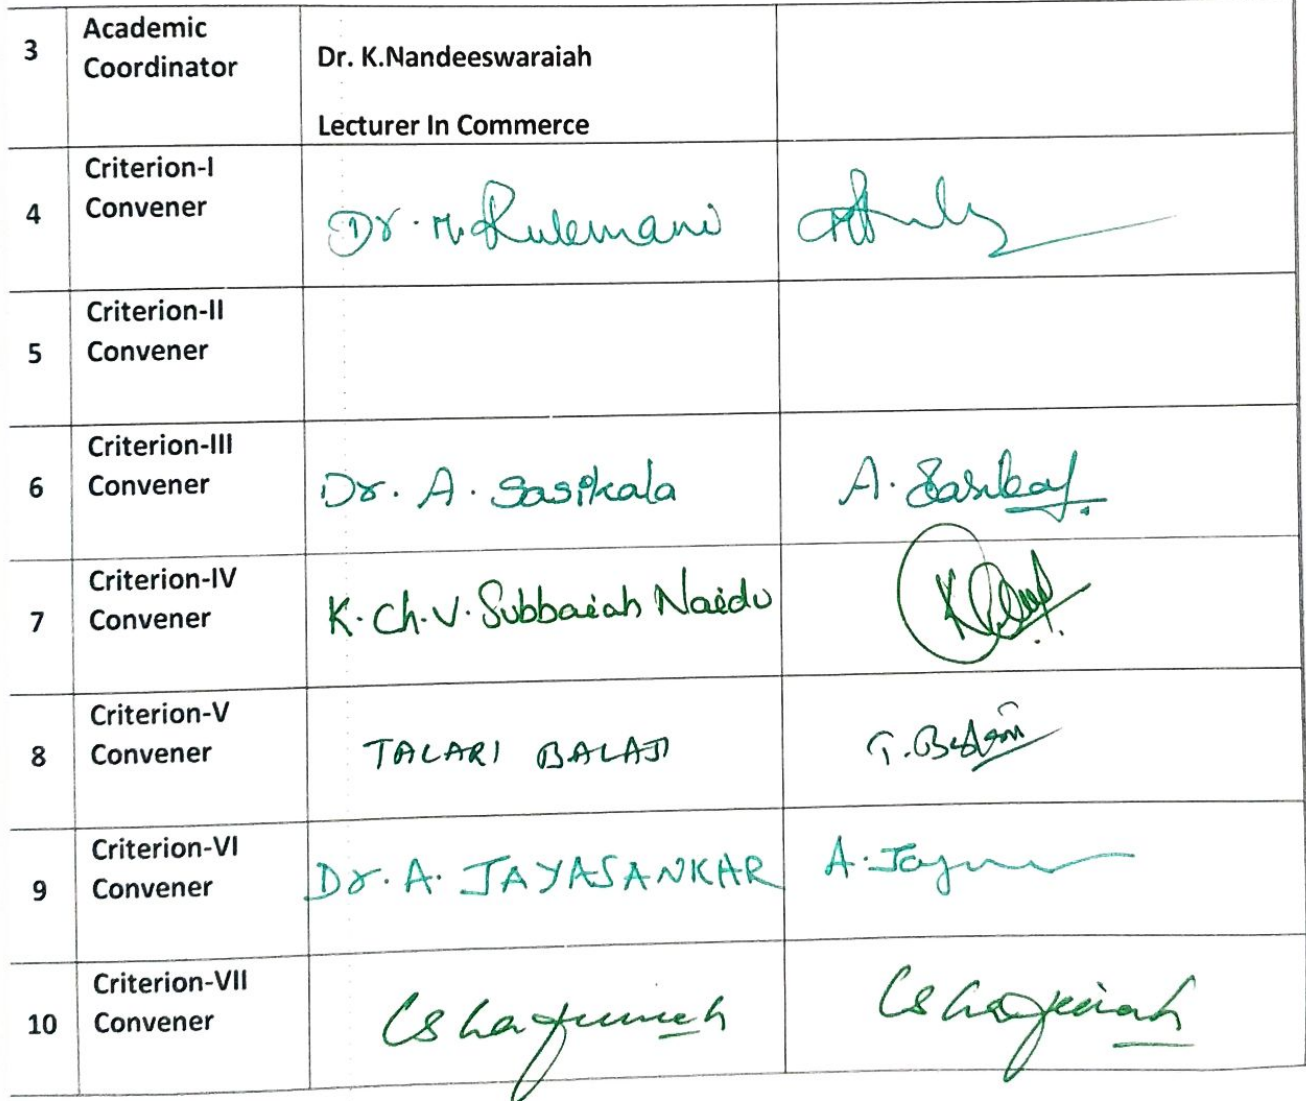 3
Academic
Coordinator
Dr. K.Nandeeswaraiah
Lecturer In Commerce
4
Criterion-I
Convener
Dr. M.
5
Criterion-II
Convener
6
Criterion-III
Convener
Dr. A. Sasikala
A.
7
Criterion-IV
Convener
K. Ch. V. Subbaiah Naidu
8
Criterion-V
Convener
TALARI BALAJI
T.
9
Criterion-VI
Convener
Dr. A. JAYASANKAR
A.
10
Criterion-VII
Convener